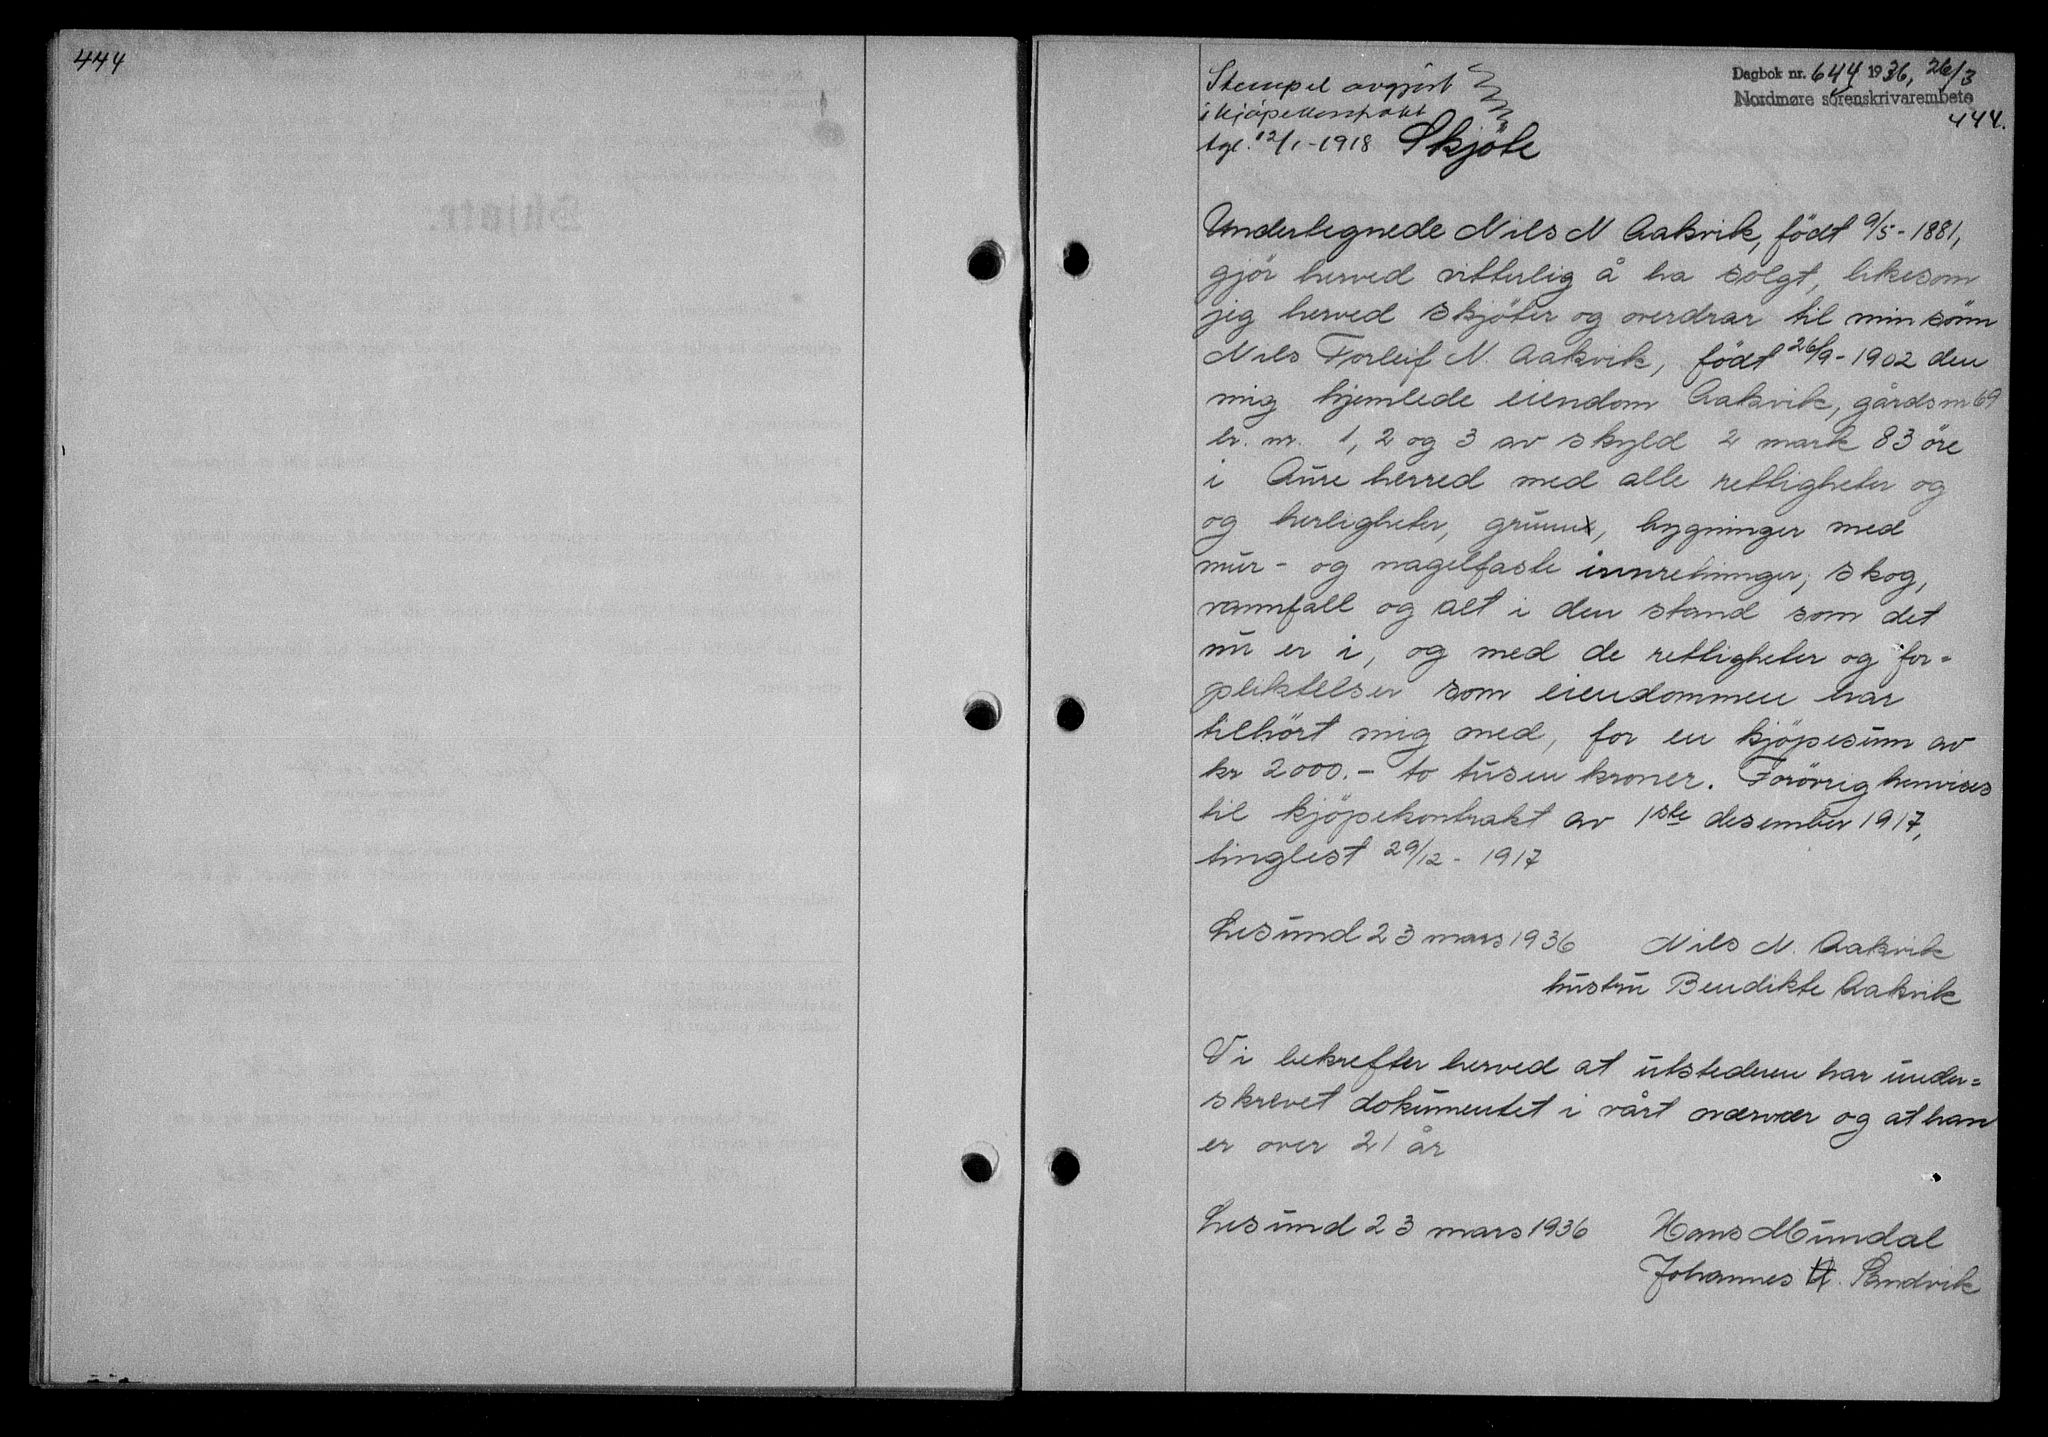 444
Dagbok nr. 644 1936, 26/3
Nordmøre sorenskrivarembete
444.
Stempel avgjort
i kjöpekontrakt
tgl. 12/1-1918 Skjöte
Undertegnede Nils N Aakvik, födt 9/5-1881,
gjör herved vitterlig å ha solgt, likesom
jeg herved skjöter og overdrar til min sönn
Nils Torleif N. Aakvik, födt 26/9-1902 den
mig hjemlede eiendom Aakvik, gårdsnr 69
br. nr. 1, 2 og 3 av skyld 2 mark 83 öre
i Aure herred med alle rettigheter og
og herligheter, grunn, bygninger med
mur- og nagelfaste innretninger, skog,
vannfall og alt i den stand som det
nu er i, og med de rettigheter og for=
pliktelser som eiendommen har
tilhört mig med, for en kjöpesum av
kr 2000.- to tusen kroner. Forövrig henvises
til kjöpekontrakt av 1ste desember 1917,
tinglest 29/12-1917
Lesund 23 mars 1936 Nils N. Aakvik
hustru Bendikte Aakvik
Vi bekrefter herved at utstederen har under=
skrevet dokumentet i vårt nærvær og at han
er over 21 år
Lesund 23 mars 1936 Hans Mundal
Johannes Sandvik